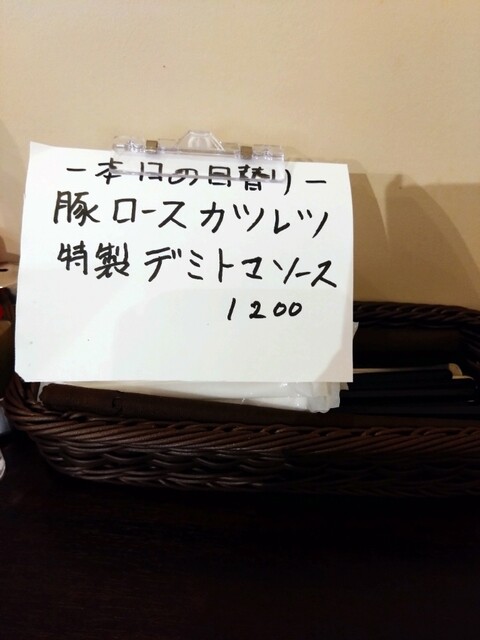 －本日の日替り－
豚ロースカツレツ
特製デミトマソース
1200